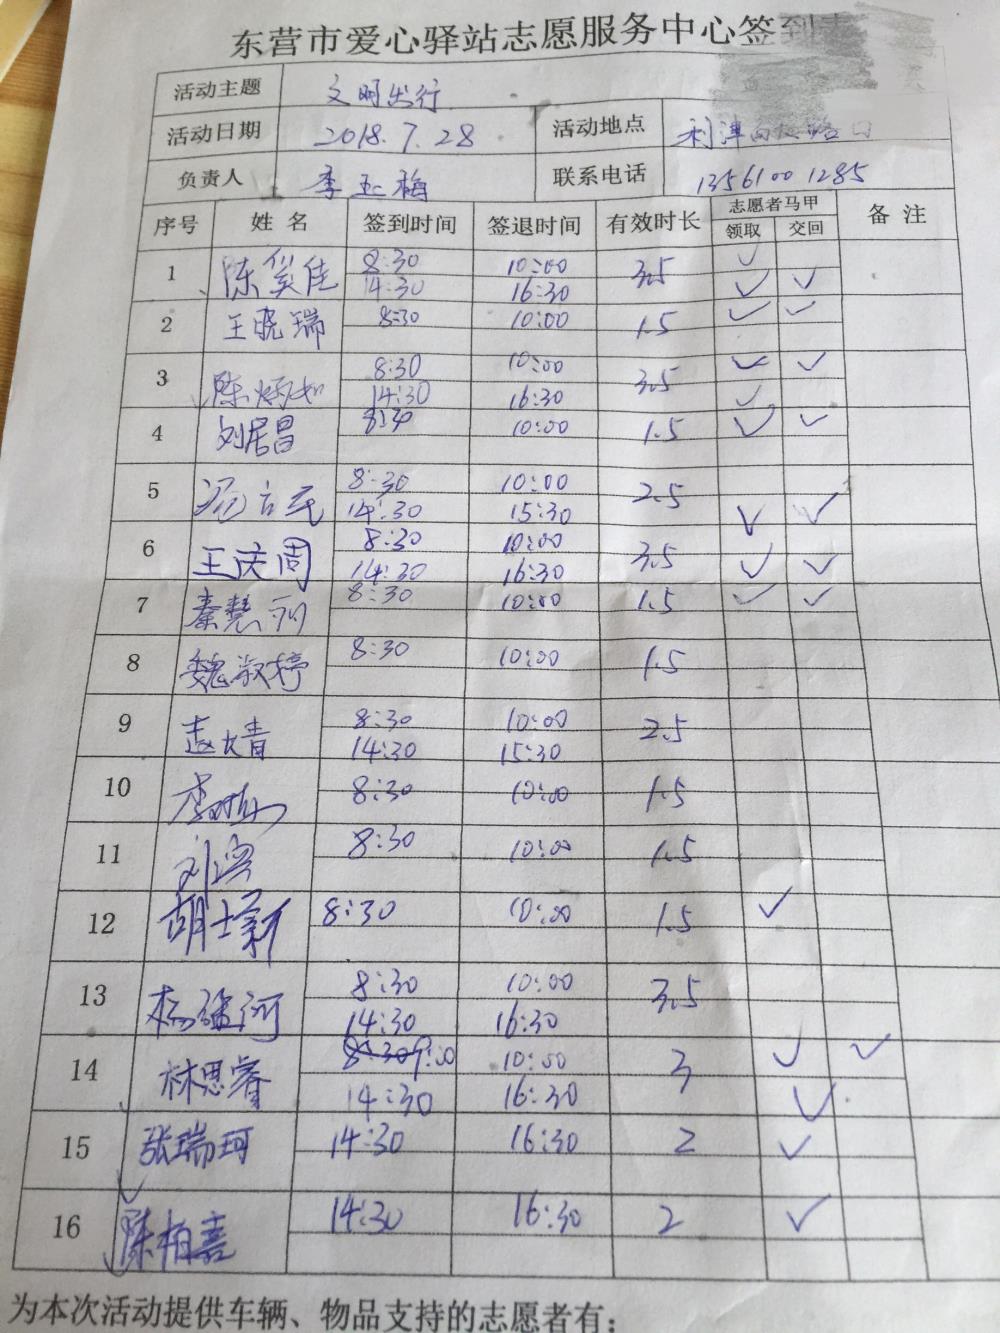 东营市爱心驿站志愿服务中心签到表
活动主题 文明出行
活动日期 2018.7.28 活动地点 利津
负责人 李玉梅 联系电话 13561001285
序号 姓名 签到时间 签退时间 有效时长 志愿者马甲 备注
领取 交回
1 陈奕佳 8:30 10:00 3.5 ✓
14:30 16:30 ✓ ✓
2 王晓瑞 8:30 10:00 1.5 ✓ ✓
3 陈炳如 8:30 10:00 3.5 ✓ ✓
14:30 16:30 ✓
4 刘居昌 8:30 10:00 1.5 ✓ ✓
5 8:30 10:00 2.5
14:30 15:30 ✓ ✓
6 王庆周 8:30 10:00 3.5
14:30 16:30 ✓ ✓
7 秦慧丽 8:30 10:00 1.5 ✓ ✓
8 魏淑婷 8:30 10:00 1.5
9 8:30 10:00 2.5
14:30 15:30
10 李 8:30 10:00 1.5
11 刘滨 8:30 10:00 1.5
12 胡士新 8:30 10:00 1.5 ✓
13 杨强河 8:30 10:00 3.5
14:30 16:30
14 林思睿 9:00 10:00 3 ✓ ✓
14:30 16:30 ✓
15 张瑞珂 14:30 16:30 2 ✓
16 陈柏嘉 14:30 16:30 2 ✓
为本次活动提供车辆、物品支持的志愿者有：